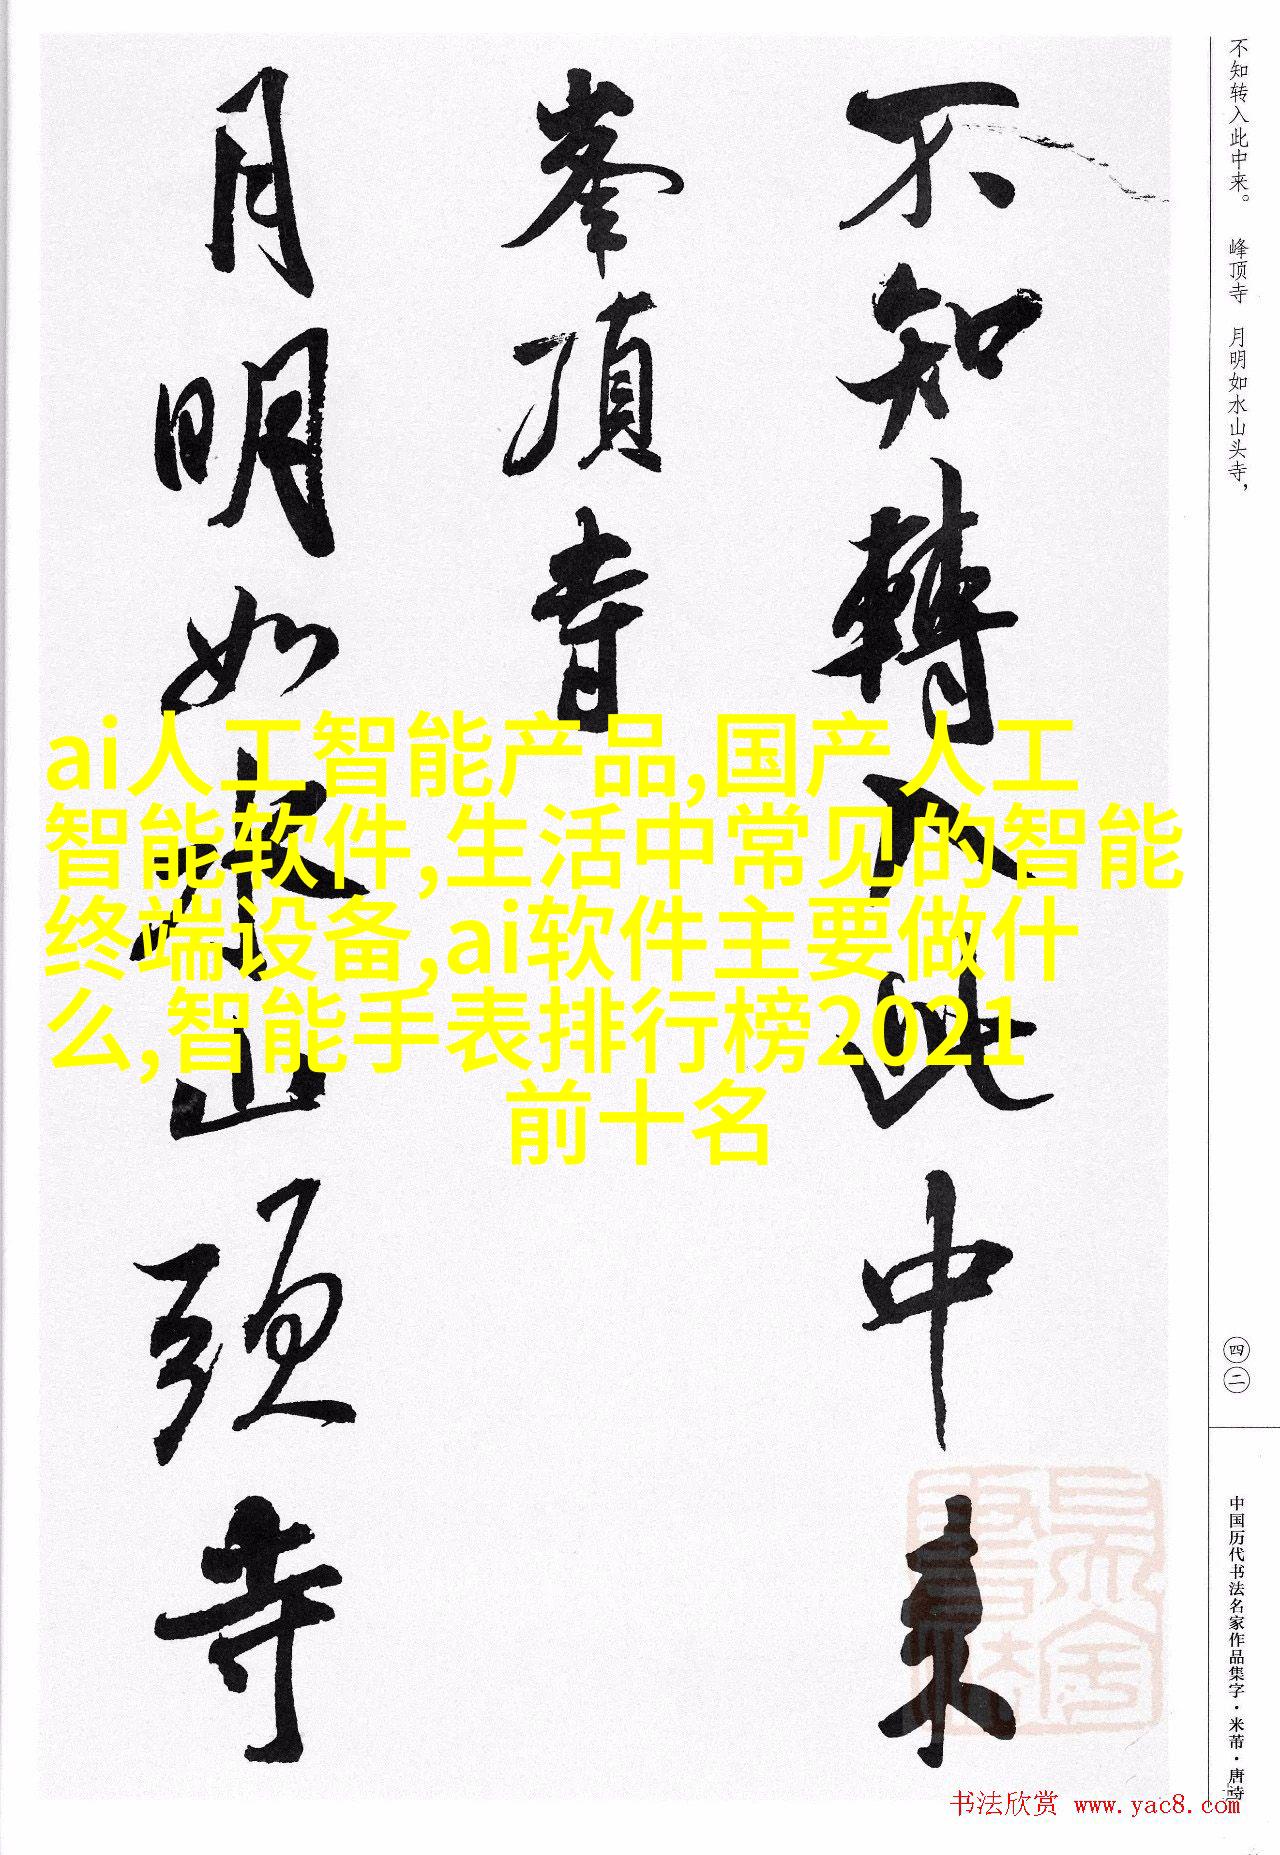 不知转入此中来。 峰顶寺 月明如水山头寺，
不知轉入此中来
峯頂寺
月明如水山頭寺
ai人工智能产品,国产人工
智能软件,生活中常见的智能
终端设备,ai软件主要做什
么,智能手表排行榜2021
前十名
四二
中国历代书法名家作品集字·米芾·唐诗
书法欣赏 www.yac8.com